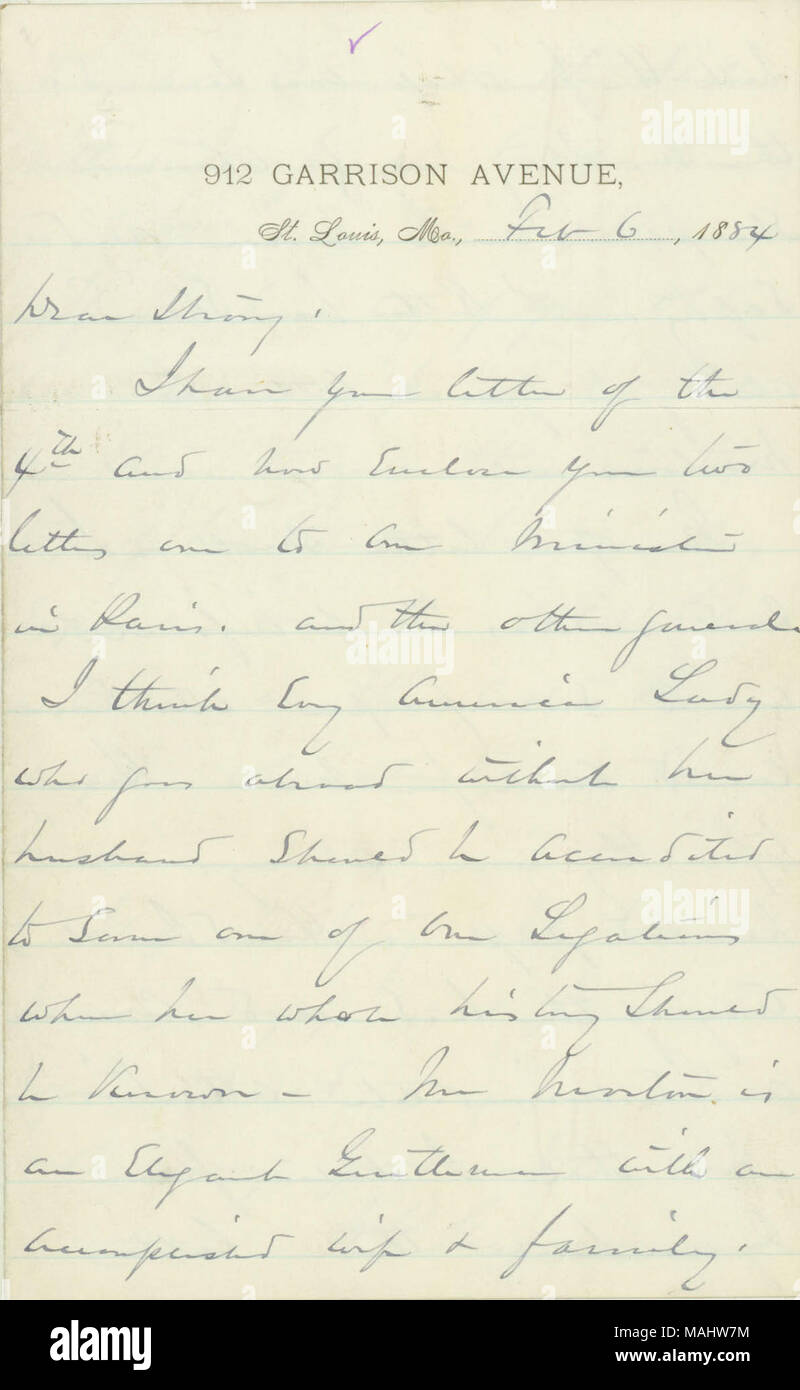 912 GARRISON AVENUE,
St. Louis, Mo., Feb 6, 1884
Dear Strong.
I have your letter of the
4th and now Enclose you two
letters one to our Minister
in Paris. and the other general
I think Every American Lady
who goes abroad without her
husband Should be accredited
to Some one of our Legations
where her whole history Should
be Known - Mr Morton is
an Elegant Gentleman with an
accomplished wife & family.
alamy
alamy
alamy
a
a
a
a
alamy
Image ID: MAHW7M
www.alamy.com